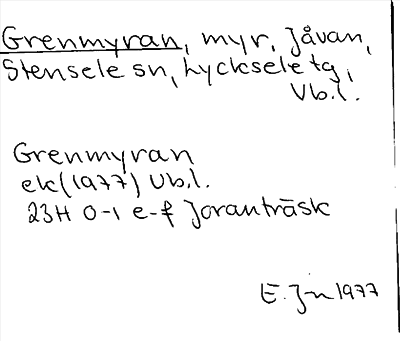 Grenmyran, myr, Jåvan,
Stensele sn, Lycksele tg,
Vb.l.
Grenmyran
ek (1977) Vb.l.
23H 0-1 e-f Joranträsk
E. Jn 1977